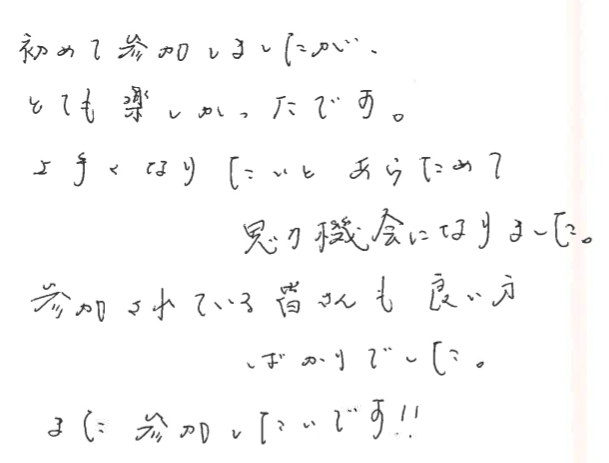 初めて参加しましたが、
とても楽しかったです。
上手くなりたいと あらためて
思う機会になりました。
参加されている皆さんも 良い方
ばかりでした。
また 参加したいです!!